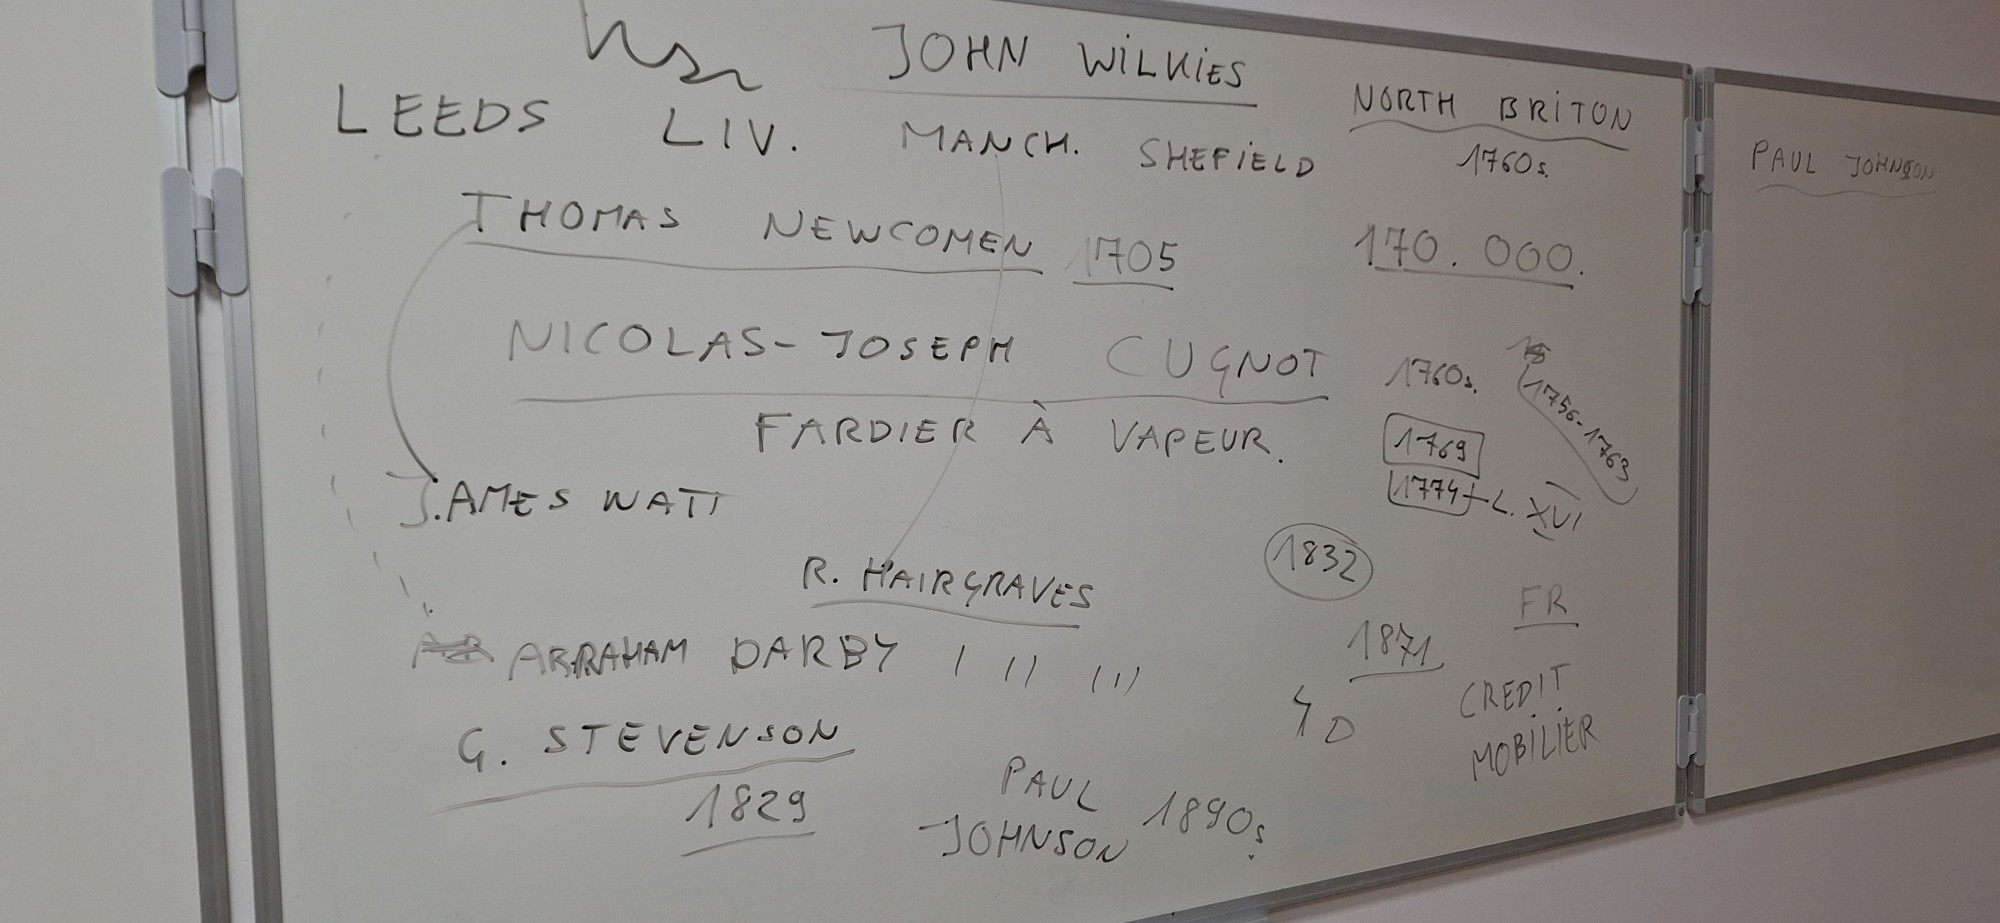 JOHN WILKIES
NORTH BRITON
1760s.
LEEDS LIV. MANCH. SHEFIELD
THOMAS NEWCOMEN 1705
170.000.
NICOLAS-JOSEPH CUGNOT 1760s.
1756-1763
FARDIER À VAPEUR.
1769
1774 L. XVI
J.AMES WATT
1832
R. HAIRGRAVES
FR
ABRAHAM DARBY I II III
1871
CREDIT
MOBILIER
G. STEVENSON
1829
PAUL
JOHNSON 1890s
PAUL JOHNSON